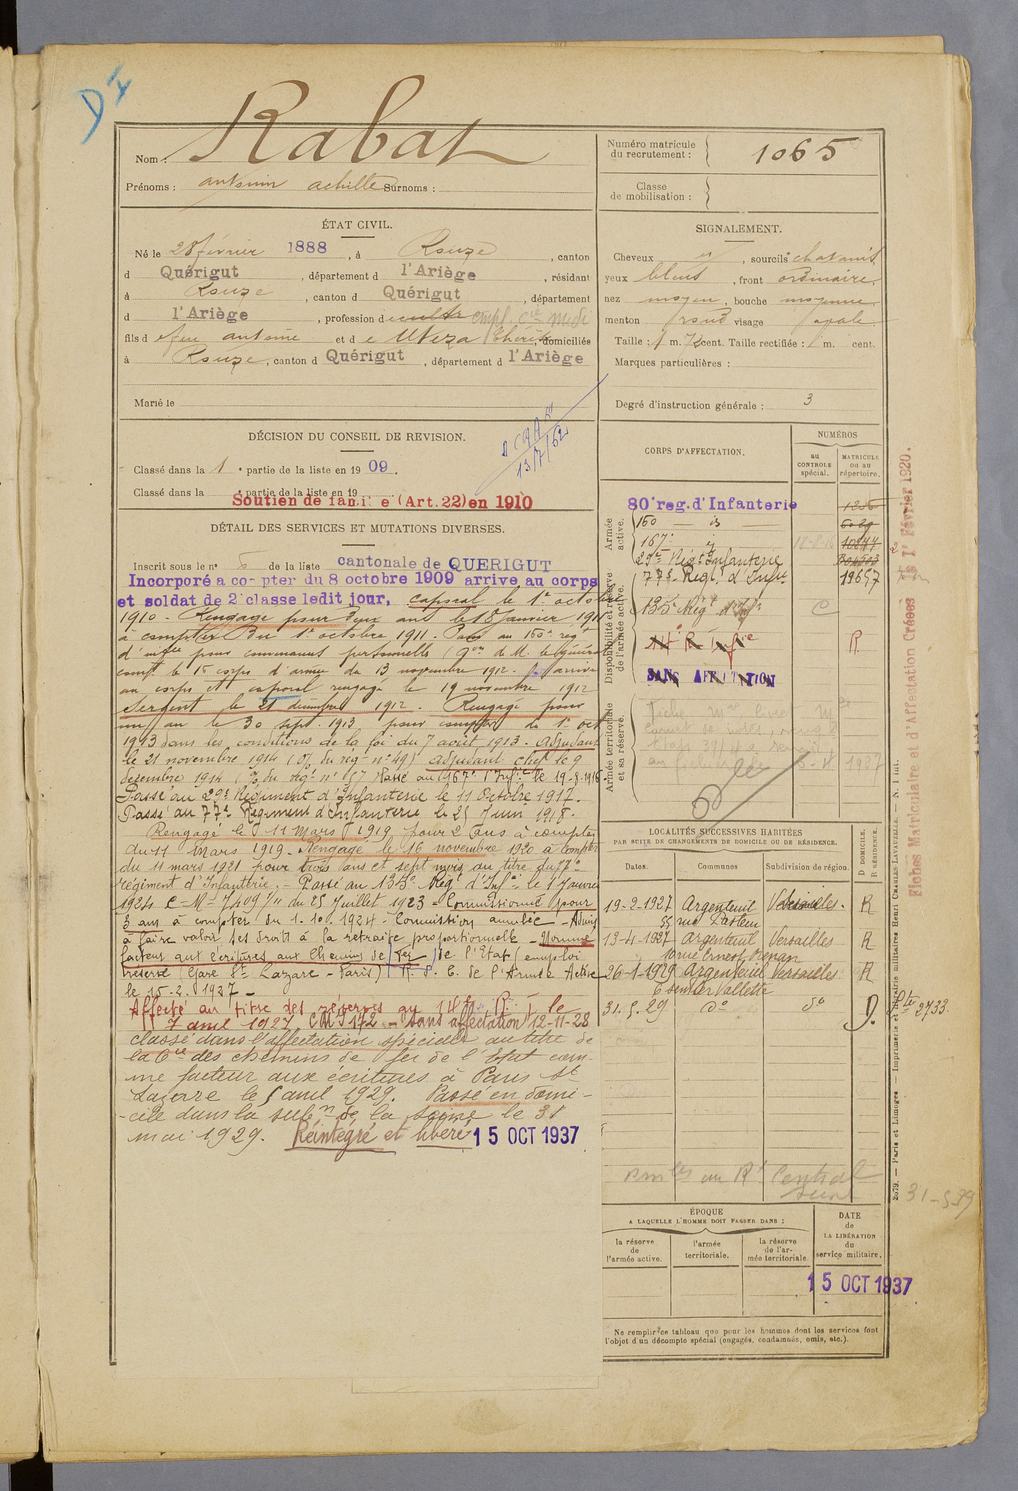 D I
Nom : Rabat
Prénoms : antonin achille Surnoms :
Numéro matricule
du recrutement :
1065
Classe
de mobilisation :
ÉTAT CIVIL.
Né le 28 février 1888, à Rouze, canton
d Quérigut, département d l'Ariège, résidant
à Rouze, canton d Quérigut, département
d l'Ariège, profession d cultr empl. Cie midi
fils d feu antoine et d e Utéza, domiciliés
à Rouze, canton d Quérigut, département d l'Ariège
Marié le
SIGNALEMENT.
Cheveux et, sourcils chatains
yeux bleus, front ordinaire,
nez moyen, bouche moyenne
menton rond visage ovale
Taille : 1 m. cent. Taille rectifiée : 1 m. cent.
Marques particulières :
Degré d'instruction générale : 3
DÉCISION DU CONSEIL DE REVISION.
Classé dans la 1e partie de la liste en 19 09.
Classé dans la e partie de la liste en 19
Soutien de famille (Art. 22) en 1910
13/7/62
DÉTAIL DES SERVICES ET MUTATIONS DIVERSES.
Inscrit sous le n° 5 de la liste cantonale de QUERIGUT
Incorporé a compter du 8 octobre 1909 arrive au corps
et soldat de 2e classe ledit jour, caporal le 1er octobre
1910 - Rengagé pour deux ans le 18 janvier 1911
à compter du 1er octobre 1911. Passé au 160e rég
d'infie pour convenances personnelles (Don d. M. le général
comt le 16 corps d'armée du 13 novembre 1912. arrivé
au corps et caporal rengagé le 19 novembre 1912
Sergent le 21 décembre 1912. Rengagé pour
un an le 30 sept. 1913 pour compter du 1er oct
1913 dans les conditions de la loi du 7 août 1913. adjudant
le 21 novembre 1914 (O/ du rég n° 49) adjudant chef le 9
décembre 1914 (O/ du rég n° 57) Passé au 167e d'Infie le 19-8-1916
Passé au 29e Régiment d'Infanterie le 11 Octobre 1917.
Passé au 77e Régiment d'infanterie le 25 Juin 1918.
Rengagé le 11 Mars 1919 pour 2 ans à compter
du 11 mars 1919. Rengagé le 16 novembre 1920 à compter
du 11 mars 1921 pour trois ans et sept mois au titre du 77e
régiment d'Infanterie. - Passé au 135e Régt d'Infie le 1 Janvier
1924 C-M- 7409 7/11 du 25 Juillet 1923 - Commissionné pour
3 ans à compter du 1.10.1924 - Commission annulée - Admis
à faire valoir ses droits à la retraite proportionnelle - Nommé
facteur aux écritures aux Chemins de fer de l'Etat (emploi
réservé (Gare St Lazare - Paris) R. d. C. de l'Armée Active
le 15. 2. 1927 -
Affecté au titre des réserves au 14e R. I. le
7 avril 1927 CMJ 172 - Sans affectation 12-11-28
classé dans l'affectation spéciale au titre de
la Cie des chemins de fer de l'Etat com-
me facteur aux écritures à Paris St
Lazare le 5 avril 1929. Passé en domi-
cile dans la subon de la Seine le 31
mai 1929. Réintégré et libéré 15 OCT 1937
CORPS D'AFFECTATION.
NUMÉROS
au
CONTROLE
spécial.
MATRICULE
ou au
répertoire.
Armée
active.
80e reg. d'Infanterie
160 — is
167e
29me Régt Infanterie
77e Régt d'Infie 19657
Disponibilité et réserve
de l'armée active.
135e Régt d'Infie C
14e R Infie R
SANS AFFECTATION
Armée territoriale
et sa réserve.
LOCALITÉS SUCCESSIVES HABITÉES
PAR SUITE DE CHANGEMENTS DE DOMICILE OU DE RÉSIDENCE.
Dates.
Communes
Subdivision de région.
D DOMICILE.
R RÉSIDENCE.
19-2-1927 Argenteuil Versailles. R
55 rue Pasteur
13-4-1927 Argenteuil Versailles R
rue Ernest Renan
26-1-1929 Argenteuil Versailles R
6 sentier Vallette
31. 5. 29 do do D. Pte 2733.
Central
Seine
31-5-39
ÉPOQUE
A LAQUELLE L'HOMME DOIT PASSER DANS :
la réserve
de
l'armée active.
l'armée
territoriale.
la réserve
de l'ar-
mée territoriale.
DATE
de
LA LIBÉRATION
du
service militaire.
15 OCT 1937
Ne remplir ce tableau que pour les hommes dont les services font
l'objet d'un décompte spécial (engagés, condamnés, omis, etc.).
Fiches Matriculaire et d'Affectation Créées le 1er Février 1920.
2079. — Paris et Limoges. — Imprimerie et librairie militaires Henri CHARLES-LAVAUZELLE.